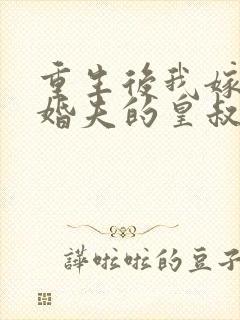 重生後我嫁
婚夫的皇叔
譁啦啦的豆子